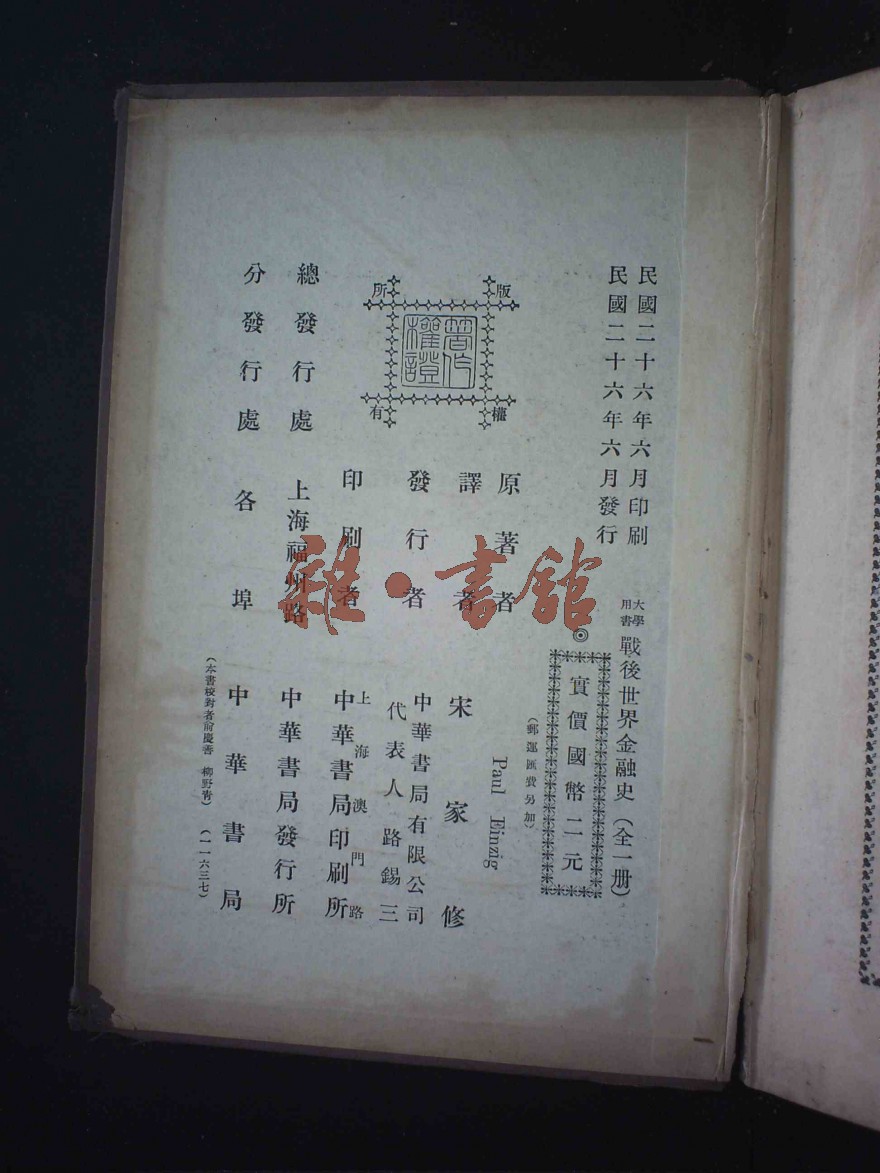 民國二十六年六月印刷
民國二十六年六月發行
大學用書 戰後世界金融史（全一册）
實價國幣二元
（郵運匯費另加）
版權所有
著作權證
原著者 Paul Einzig
譯者 宋家修
發行者 中華書局有限公司
代表人 路錫三
印刷者 上海澳門路
中華書局印刷所
總發行處 上海福州路 中華書局發行所
分發行處 各埠 中華書局
（本書校對者俞慶善 柳野青）
（一一六三七）
雜·書館